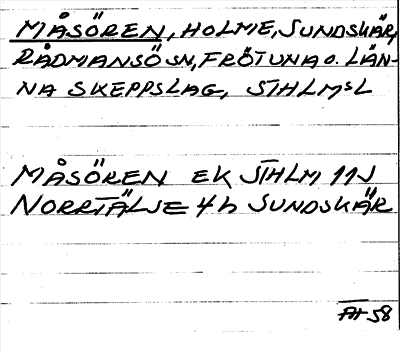 MÅSÖREN, HOLME, SUNDSKÄR,
RÅDMANSÖ SN, FRÖTUNA o. LÄN-
NA SKEPPSLAG, STHLMS L
MÅSÖREN EK STHLM 11J
NORRTÄLJE 4h SUNDSKÄR
AH 58